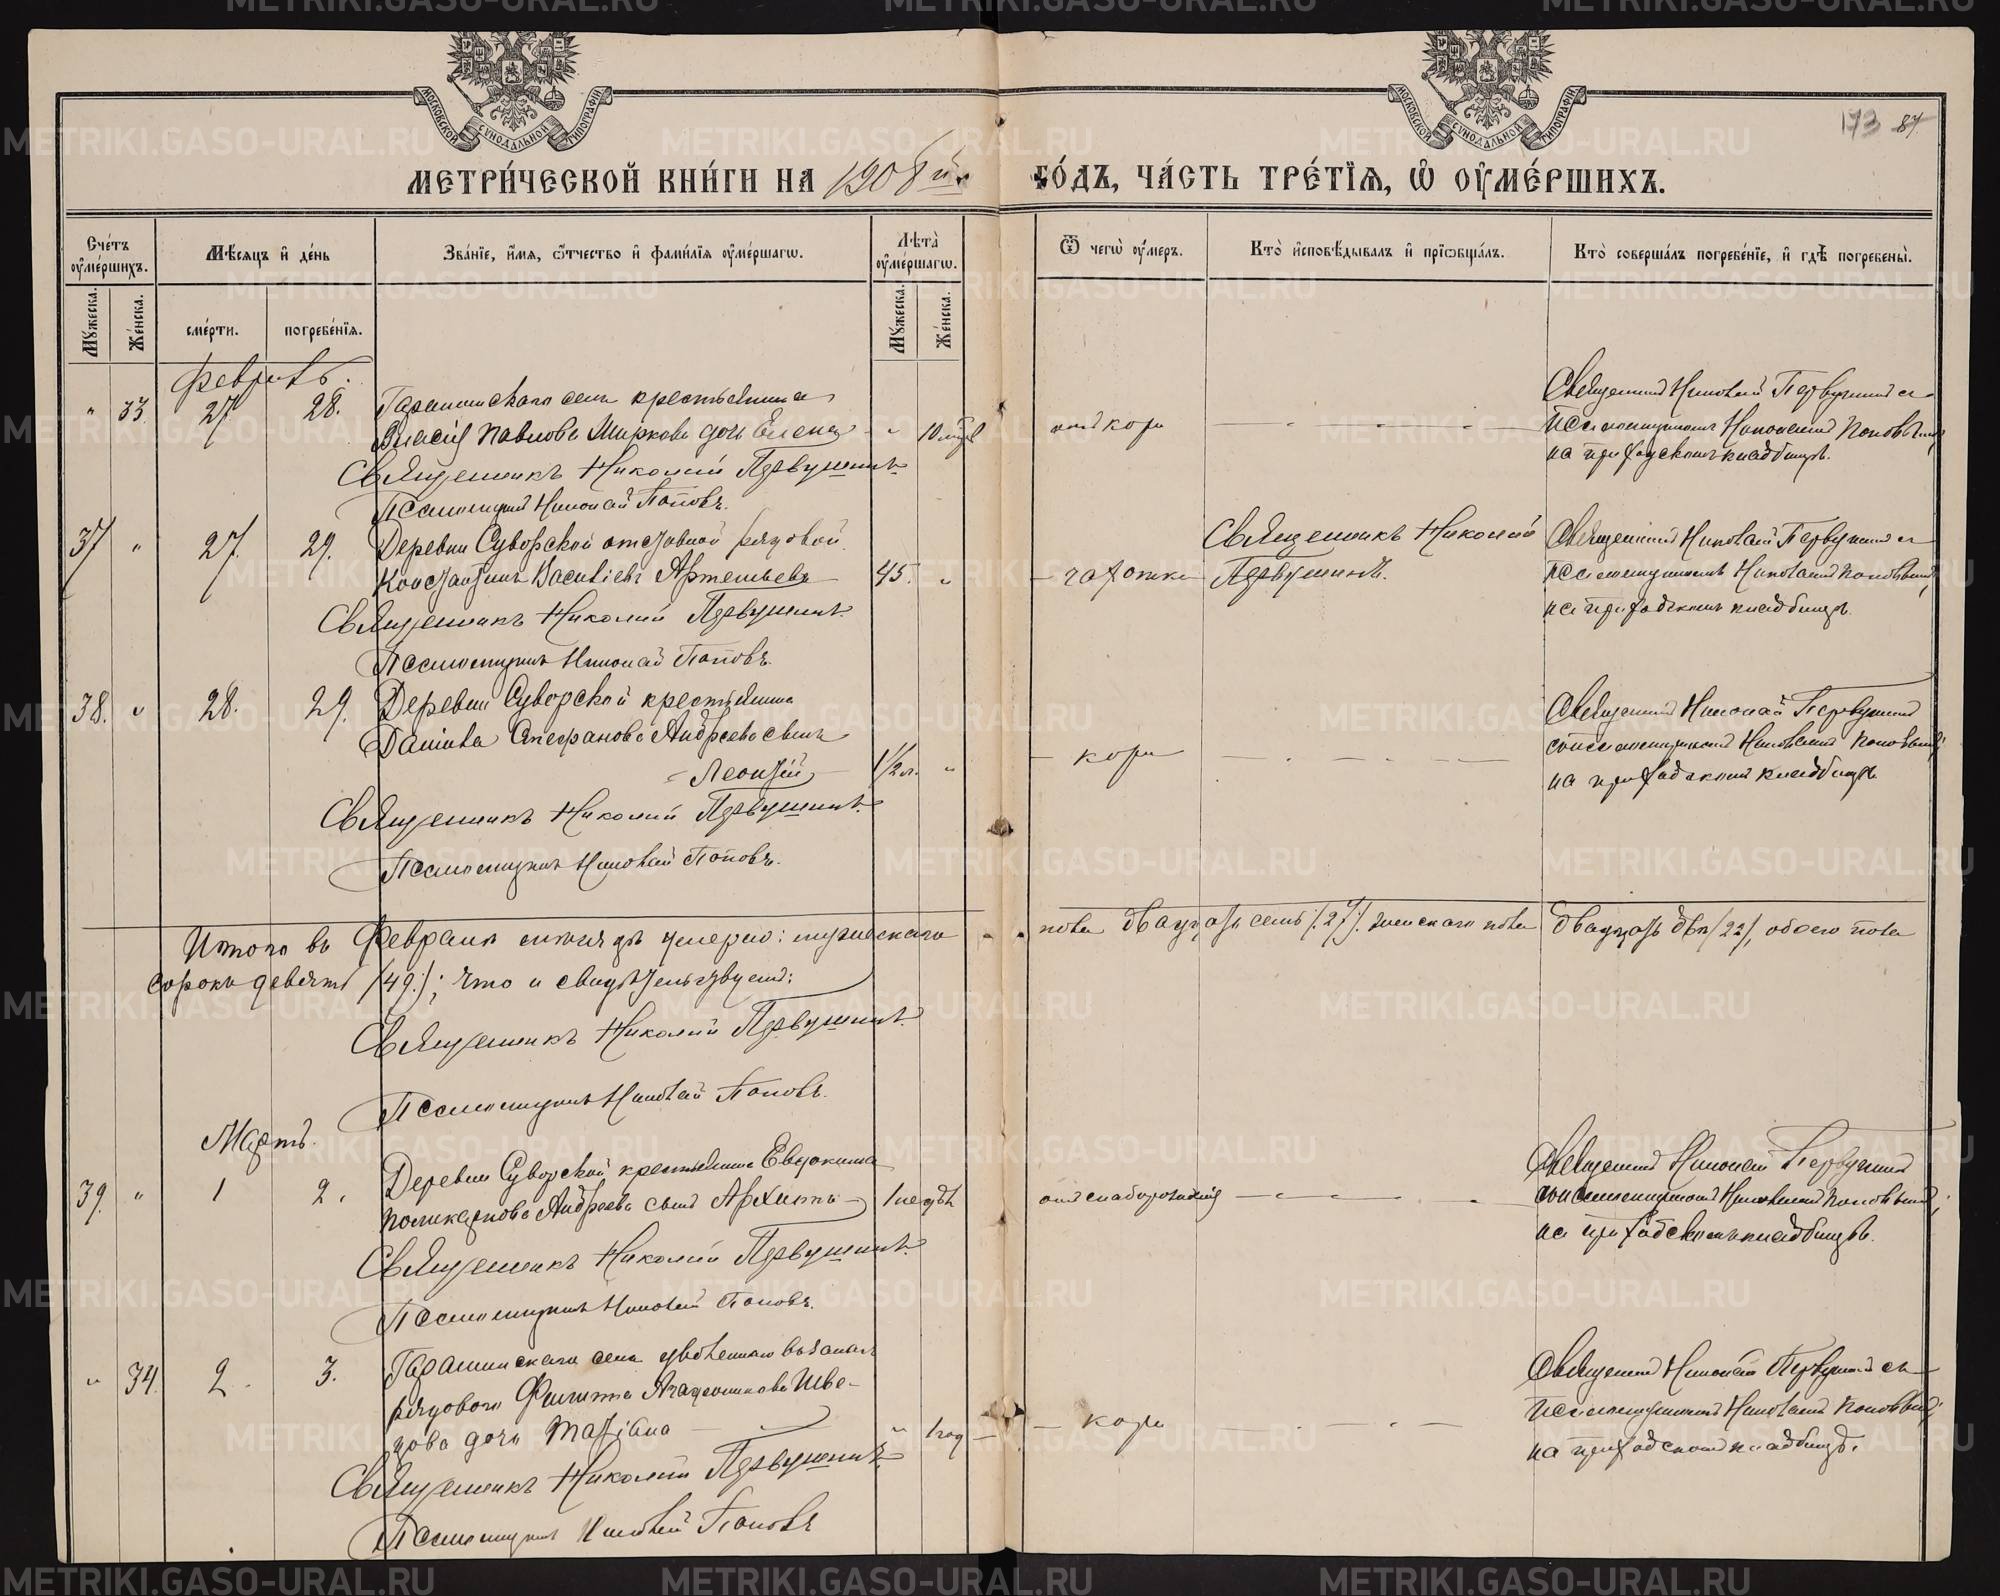 МОСКОВСКОЙ СѴНОДАЛЬНОЙ ТИПОГРАФІИ
МОСКОВСКОЙ СѴНОДАЛЬНОЙ ТИПОГРАФІИ
173 87
МЕТРИ́ЧЕСКОЙ КНИ́ГИ НА 1908й ГО́ДЪ, ЧА́СТЬ ТРЕ́ТЇѦ, Ѡ ОУМЕ́РШИХЪ.
Сче́тъ оуме́ршихъ.
Мѣ́сяцъ и де́нь
Зва́нїе, и́мя, ѻ́тчество и фами́лїя оуме́ршагѡ.
Лѣта̀ оуме́ршагѡ.
Ѿ чегѡ̀ оу́меръ.
Кто̀ исповѣ́дывалъ и прїѡбща́лъ.
Кто̀ соверша́лъ погребе́нїе, и гдѣ̀ погребены̀.
Му́жеска.
Же́нска.
сме́рти.
погребе́нїя.
Му́жеска.
Же́нска.
Февраль.
" 33. 27 28. Гарашкинскаго села крестьянина
Власія Павлова Миркова дочь Елена " 10 мѣс. отъ кори
Священникъ Николай Первушинъ
Псаломщикъ Николай Поповъ.
Священникъ Николай Первушинъ съ
псаломщикомъ Николаемъ Поповымъ,
на приходскомъ кладбищѣ.
37 " 27. 29. Деревни Суворской отставной рядовой
Константинъ Василіевъ Артемьевъ 45. " – чахотки
Священникъ Николай Первушинъ.
Псаломщикъ Николай Поповъ.
Священникъ Николай
Первушинъ.
Священникъ Николай Первушинъ съ
псаломщикомъ Николаемъ Поповымъ,
на приходскомъ кладбищѣ.
38. " 28. 29. Деревни Суворской крестьянина
Данила Стефанова Андреева сынъ
Леонтій 1/2 л. " – кори
Священникъ Николай Первушинъ.
Псаломщикъ Николай Поповъ.
Священникъ Николай Первушинъ
съ псаломщикомъ Николаемъ Поповымъ,
на приходскомъ кладбищѣ
Итого въ Февралѣ мѣсяцѣ умерло: мужескаго пола двадцать семь /27/, женскаго пола двадцать два /22/, обоего пола
сорокъ девять /49./; что и свидѣтельствуемъ:
Священникъ Николай Первушинъ.
Псаломщикъ Николай Поповъ.
Мартъ.
39. " 1 2. Деревни Суворской крестьянина Евдокима
Поликарпова Андреева сынъ Архиппъ 1 недѣл. отъ слаборожденія
Священникъ Николай Первушинъ
Псаломщикъ Николай Поповъ.
Священникъ Николай Первушинъ
съ псаломщикомъ Николаемъ Поповымъ,
на приходскомъ кладбищѣ.
" 34. 2. 3. Гарашкинскаго села уволеннаго въ запасъ
рядового Филиппа Агафонникова Шве-
цова дочь Татіана " 1 год. – кори
Священникъ Николай Первушинъ
Псаломщикъ Николай Поповъ
Священникъ Николай Первушинъ съ
псаломщикомъ Николаемъ Поповымъ,
на приходскомъ кладбищѣ.
METRIKI.GASO-URAL.RU